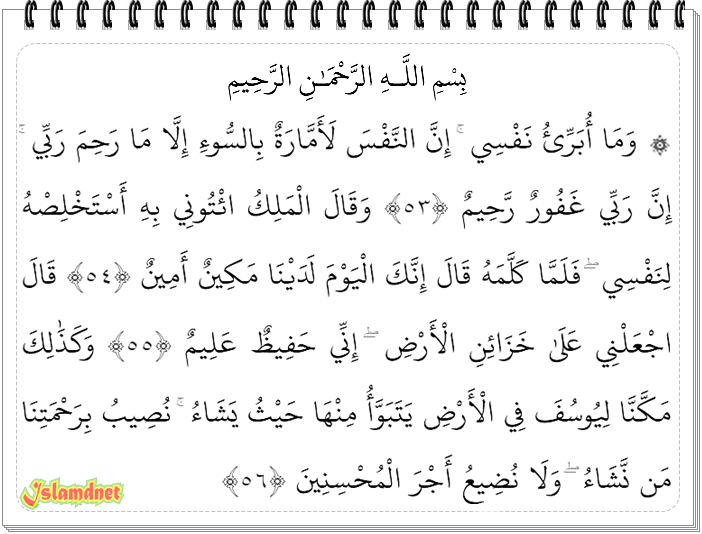 بِسْمِ اللَّـهِ الرَّحْمَـٰنِ الرَّحِيمِ
۞ وَمَا أُبَرِّئُ نَفْسِي ۚ إِنَّ النَّفْسَ لَأَمَّارَةٌ بِالسُّوءِ إِلَّا مَا رَحِمَ رَبِّي ۚ
إِنَّ رَبِّي غَفُورٌ رَّحِيمٌ ﴿٥٣﴾ وَقَالَ الْمَلِكُ ائْتُونِي بِهِ أَسْتَخْلِصْهُ
لِنَفْسِي ۖ فَلَمَّا كَلَّمَهُ قَالَ إِنَّكَ الْيَوْمَ لَدَيْنَا مَكِينٌ أَمِينٌ ﴿٥٤﴾ قَالَ
اجْعَلْنِي عَلَىٰ خَزَائِنِ الْأَرْضِ ۖ إِنِّي حَفِيظٌ عَلِيمٌ ﴿٥٥﴾ وَكَذَٰلِكَ
مَكَّنَّا لِيُوسُفَ فِي الْأَرْضِ يَتَبَوَّأُ مِنْهَا حَيْثُ يَشَاءُ ۚ نُصِيبُ بِرَحْمَتِنَا
مَن نَّشَاءُ ۖ وَلَا نُضِيعُ أَجْرَ الْمُحْسِنِينَ ﴿٥٦﴾
Islamdnet